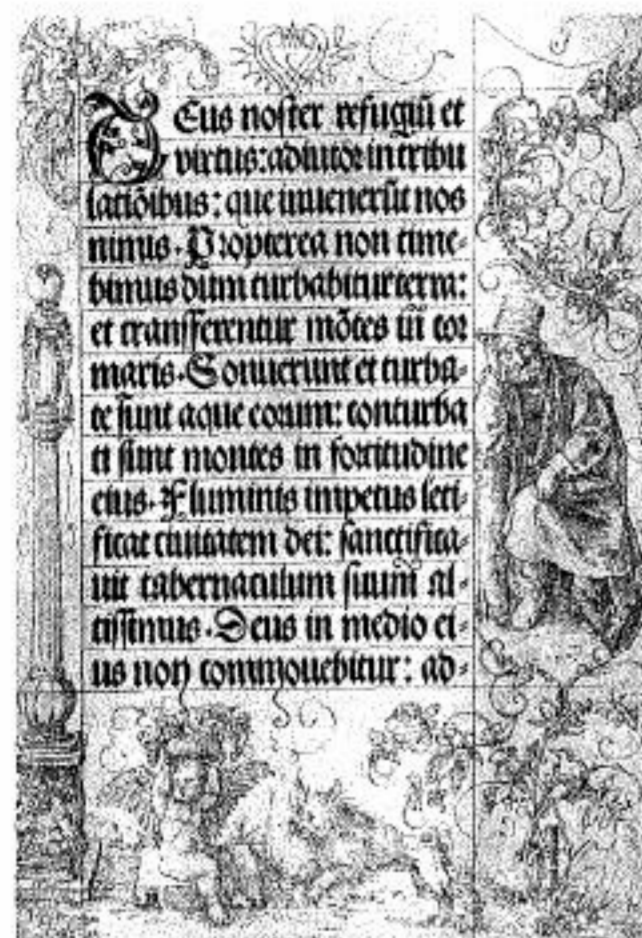 Deus noster refugiũ et
virtus: adiutor in tribu
latiõibus: que inuenerũt nos
nimis. Propterea non time-
bimus dum turbabitur terra:
et transferentur mõtes in cor
maris. Sonuerunt et turba-
te sunt aque eorum: conturba
ti sunt montes in fortitudine
eius. Fluminis impetus leti-
ficat ciuitatem dei: sanctifica-
uit tabernaculum suum al-
tissimus. Deus in medio ei-
us non commouebitur: ad-